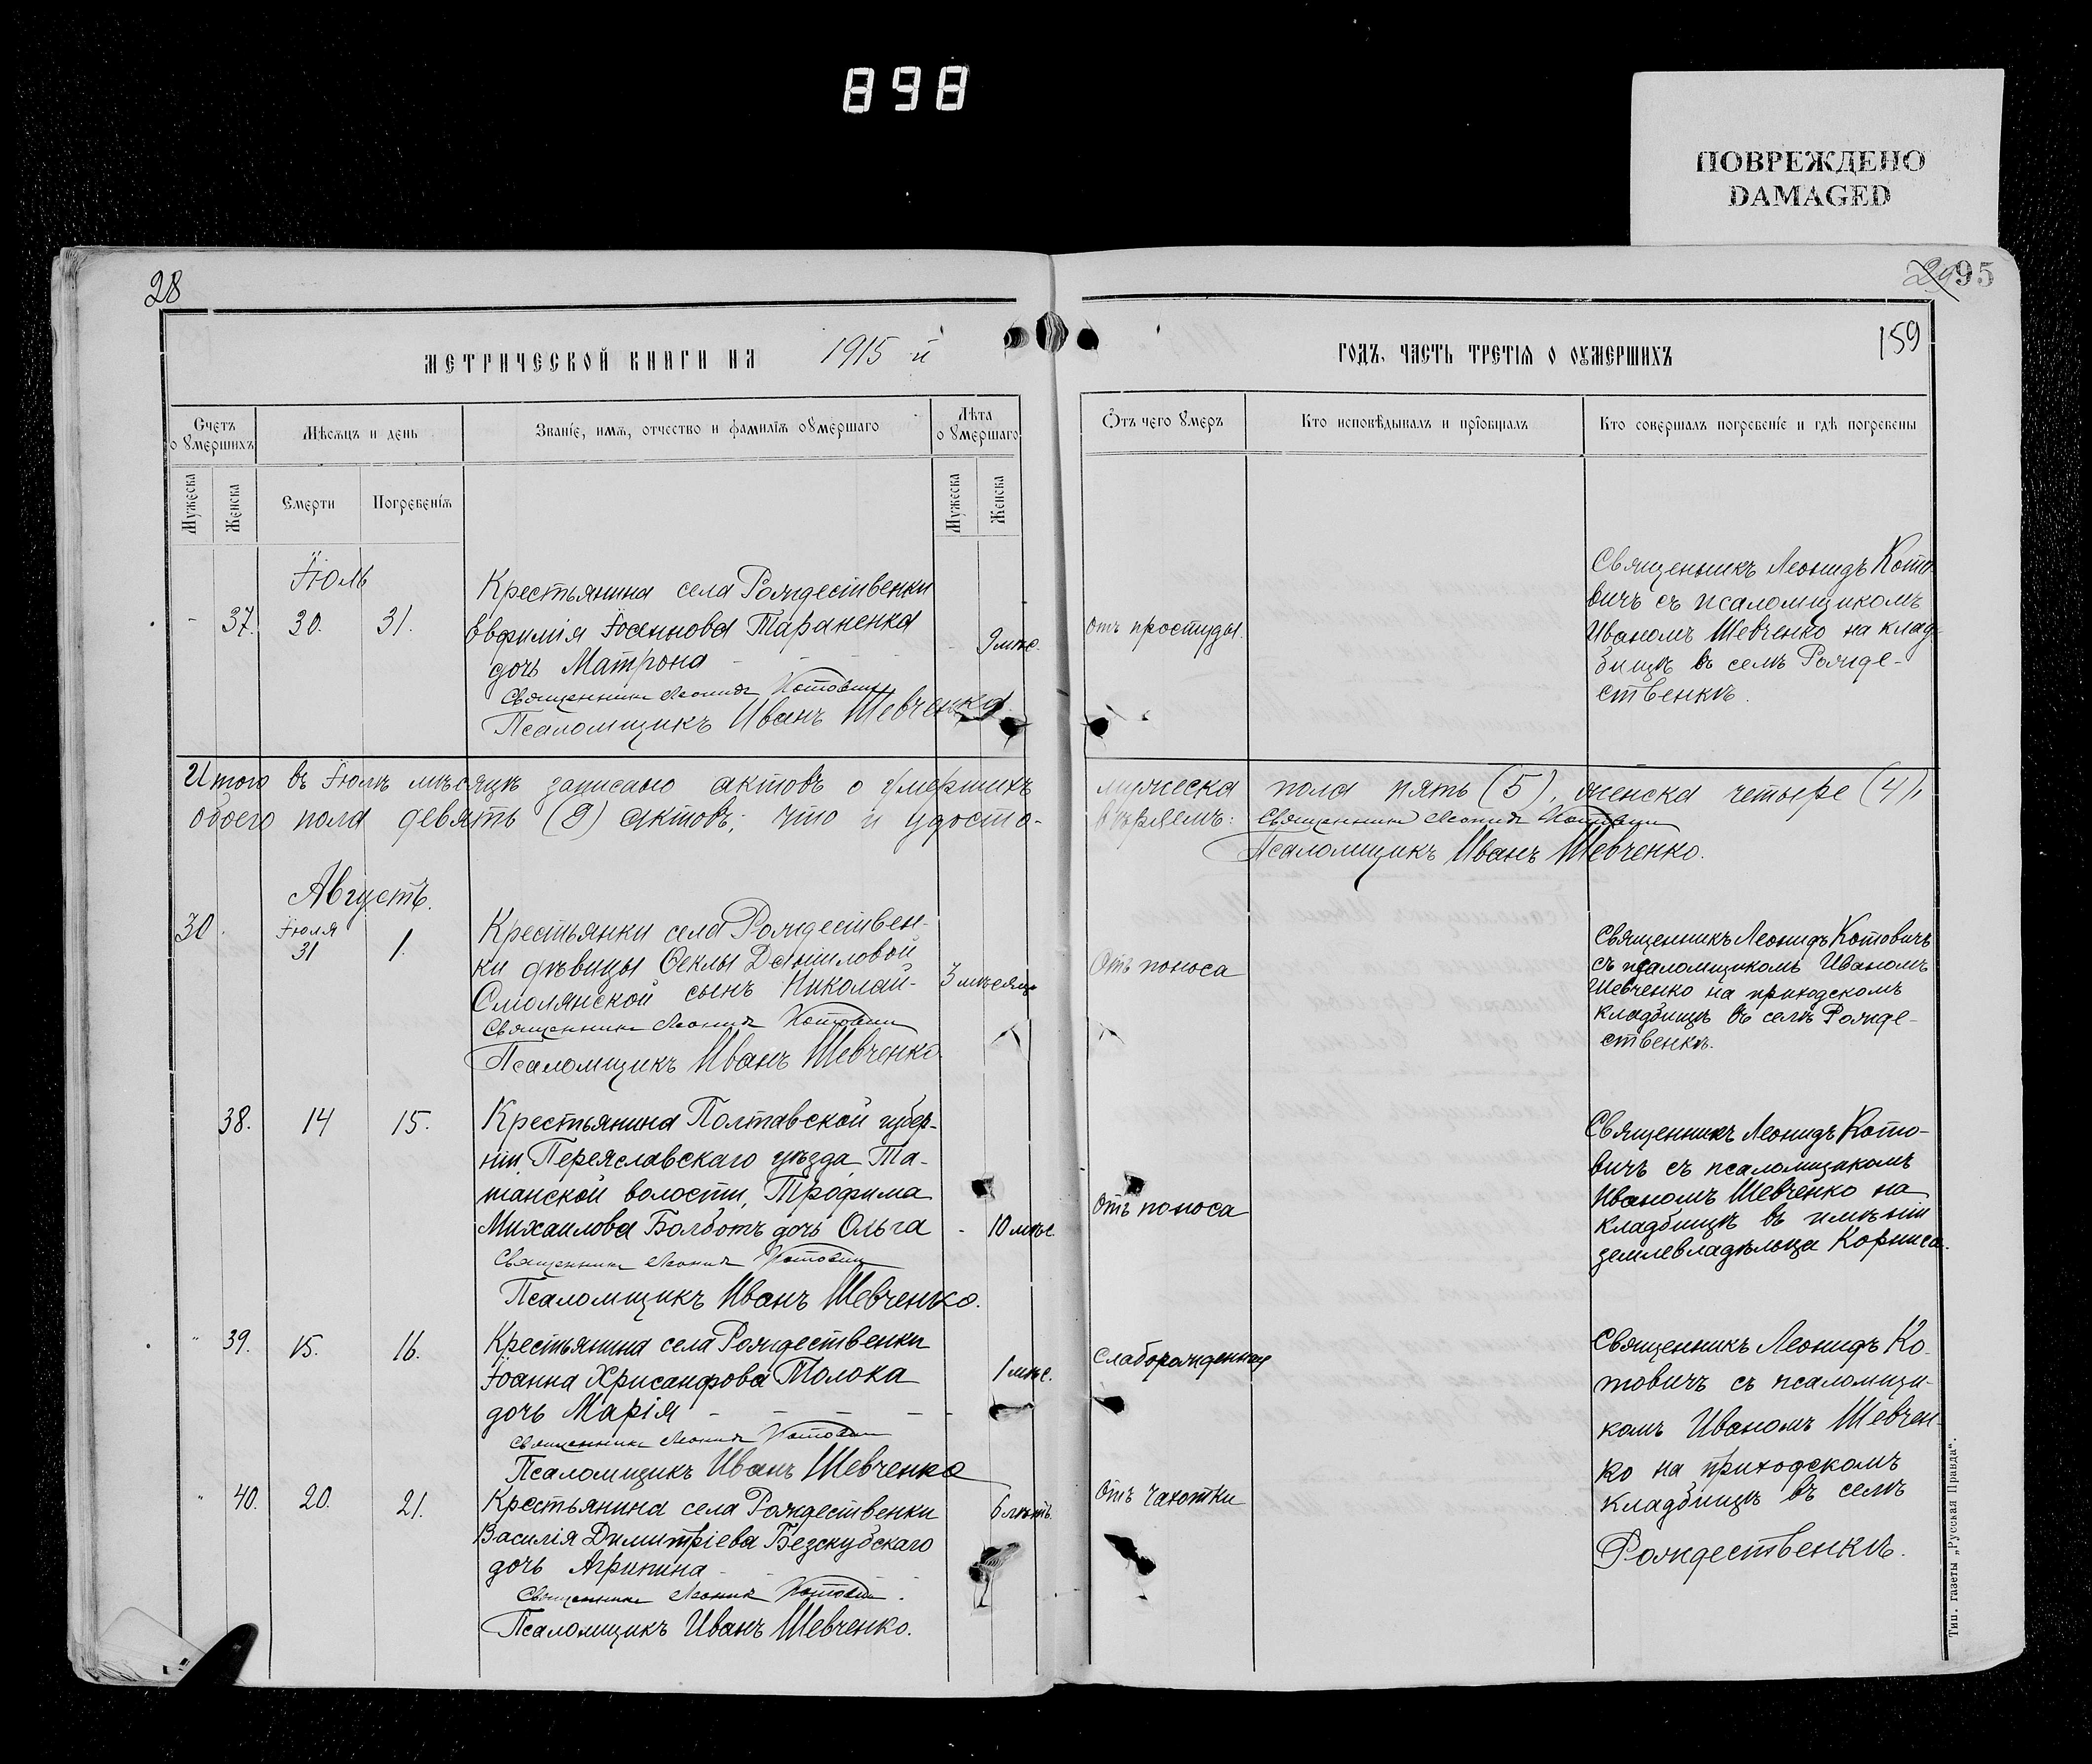 898
ПОВРЕЖДЕНО
DAMAGED
28
95
159
МЕТРИЧЕСКОЙ КНИГИ НА 1915 й
ГОДЪ, ЧАСТЬ ТРЕТІѦ О ОУМЕРШИХЪ
Счетъ о Ꙋмершихъ
Мѣсѧцъ и день
Званіе, имѧ, отчество и фамиліѧ оумершаго
Лѣта оумершаго
Ѿтъ чего Ꙋмеръ
Кто исповѣдывалъ и пріобщалъ
Кто совершалъ погребеніе и гдѣ погребены
Мужеска
Женска
Смерти
Погребеніѧ
Мужеска
Женска
Іюль
- 37. 30. 31.
Крестьянина села Рождественки
Евфимія Іоаннова Тараненка
дочь Матрона
Священникъ Леонидъ Котовичъ
Псаломщикъ Иванъ Шевченко.
9 мѣс.
отъ простуды.
Священникъ Леонидъ Кото-
вичъ съ псаломщикомъ
Иваномъ Шевченко на клад-
бищѣ въ селѣ Рожде-
ственкѣ.
Итого въ Іюлѣ мѣсяцѣ записано актовъ о умершихъ мужеска пола пять (5), женска четыре (4),
обоего пола девять (9) актовъ; что и удосто-
вѣряемъ: Священникъ Леонидъ Котовичъ
Псаломщикъ Иванъ Шевченко.
Августъ.
30. Іюля 31 1.
Крестьянки села Рождествен-
ки дѣвицы Ѳеклы Даниловой
Смолянской сынъ Николай-
Священникъ Леонидъ Котовичъ
Псаломщикъ Иванъ Шевченко
3 мѣсяца
Отъ поноса
Священникъ Леонидъ Котовичъ
съ псаломщикомъ Иваномъ
Шевченко на приходскомъ
кладбищѣ въ селѣ Рожде-
ственкѣ.
38. 14 15.
Крестьянина Полтавской губер-
ніи, Переяславскаго уѣзда, Та-
шанской волости, Трофима
Михаилова Болботъ дочь Ольга
Священникъ Леонидъ Котовичъ
Псаломщикъ Иванъ Шевченко.
- 10 мѣс.
Отъ поноса
Священникъ Леонидъ Кото-
вичъ съ псаломщикомъ
Иваномъ Шевченко на
кладбищѣ въ имѣніи
землевладѣльца Корниса.
" 39. 15. 16.
Крестьянина села Рождественки
Іоанна Хрисанфова Толока
дочь Марія
Священникъ Леонидъ Котовичъ
Псаломщикъ Иванъ Шевченко
1 мѣс.
Слаборожденная
Священникъ Леонидъ Ко-
товичъ съ псаломщи-
комъ Иваномъ Шевчен-
ко на приходскомъ
кладбищѣ въ селѣ
Рождественкѣ.
" 40. 20. 21.
Крестьянина села Рождественки
Василія Димитріева Безскубскаго
дочь Агрипина
Священникъ Леонидъ Котовичъ.
Псаломщикъ Иванъ Шевченко.
6 лѣтъ.
Отъ чахотки
Тип. газеты „Русская Правда“.